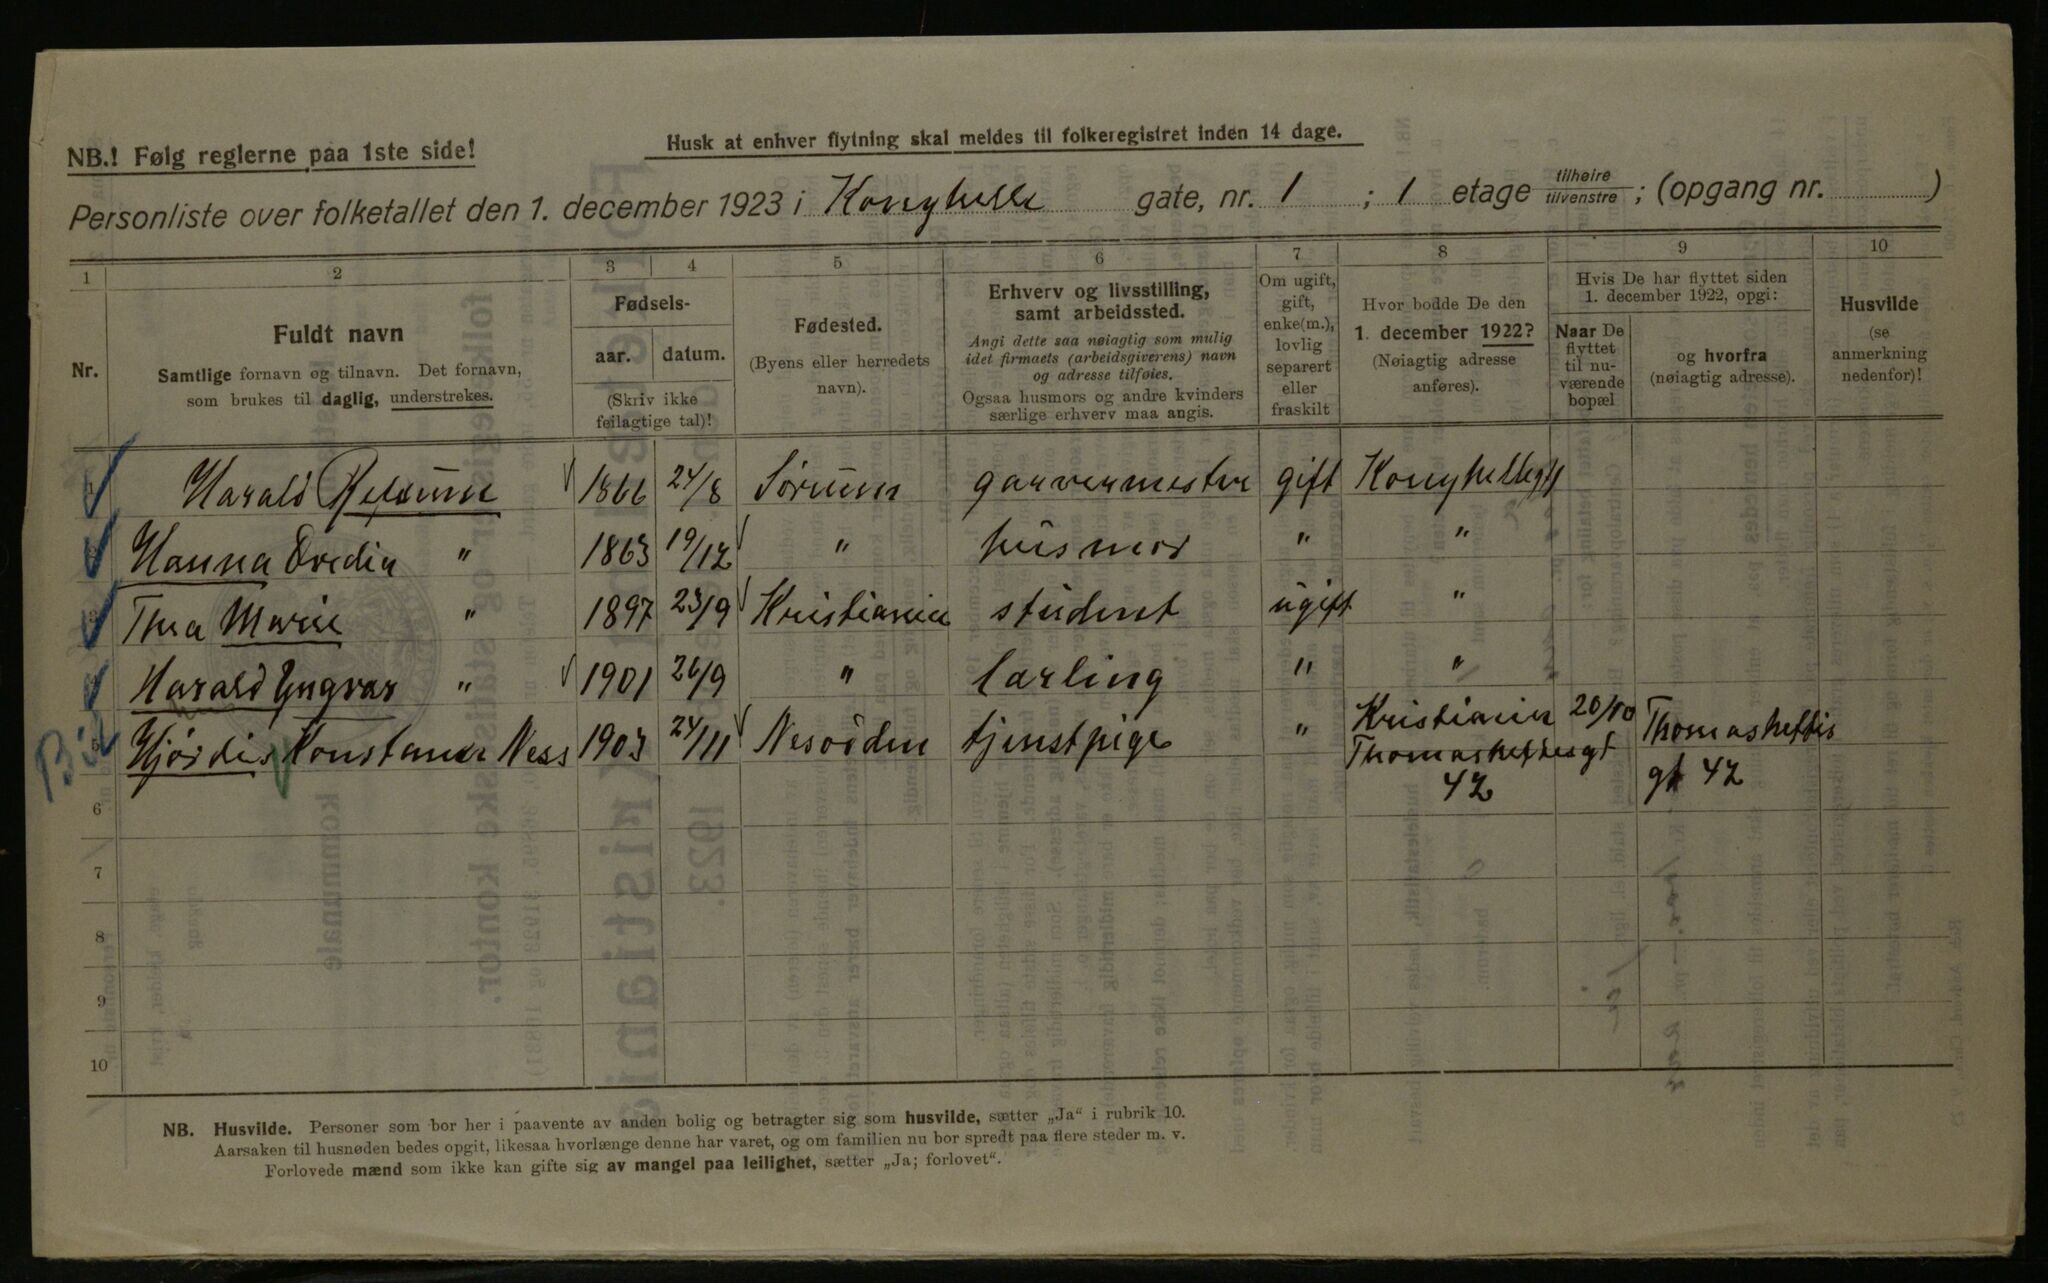 NB.! Følg reglerne paa 1ste side!
Husk at enhver flytning skal meldes til folkeregistret inden 14 dage.
Personliste over folketallet den 1. december 1923 i Konghelle gate, nr. 1 ; 1 etage tilhøire/tilvenstre ; (opgang nr. )
1 2 3 4 5 6 7 8 9 10
Nr.
Fuldt navn
Samtlige fornavn og tilnavn. Det fornavn,
som brukes til daglig, understrekes.
Fødsels-
aar. datum.
(Skriv ikke
feilagtige tal)!
Fødested.
(Byens eller herredets
navn).
Erhverv og livsstilling,
samt arbeidssted.
Angi dette saa nøiagtig som mulig
idet firmaets (arbeidsgiverens) navn
og adresse tilføies.
Ogsaa husmors og andre kvinders
særlige erhverv maa angis.
Om ugift,
gift,
enke(m.),
lovlig
separert
eller
fraskilt
Hvor bodde De den
1. december 1922?
(Nøiagtig adresse
anføres).
Hvis De har flyttet siden
1. december 1922, opgi:
Naar De
flyttet
til nu-
værende
bopæl
og hvorfra
(nøiagtig adresse).
Husvilde
(se
anmerkning
nedenfor)!
1 Harald 1866 24/8 Sørum garvermester gift Konghellegt
2 Hanna " 1863 19/12 " husmor " "
3 Thea Marie " 1897 23/9 Kristiania student ugift "
4 Harald Yngvar " 1901 26/9 " lærling " "
5 Hjørdis Konstanse Ness 1903 24/11 Nesodden tjenstpige " Kristiania 20/10 Thomasheftis
Thomasheftesgt gt 42
42
6
7
8
9
10
NB. Husvilde. Personer som bor her i paavente av anden bolig og betragter sig som husvilde, sætter „Ja" i rubrik 10.
Aarsaken til husnøden bedes opgit, likesaa hvorlænge denne har varet, og om familien nu bor spredt paa flere steder m. v.
Forlovede mænd som ikke kan gifte sig av mangel paa leilighet, sætter „Ja; forlovet".